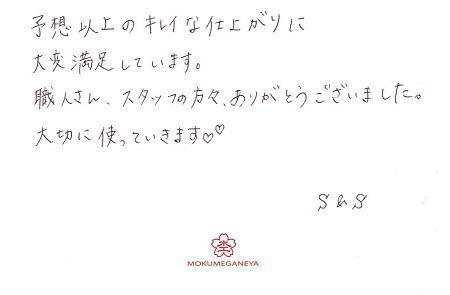 予想以上のキレイな仕上がりに
大変満足しています。
職人さん、スタッフの方々、ありがとうございました。
大切に使っていきます♡♡
S & S
杢
MOKUMEGANEYA